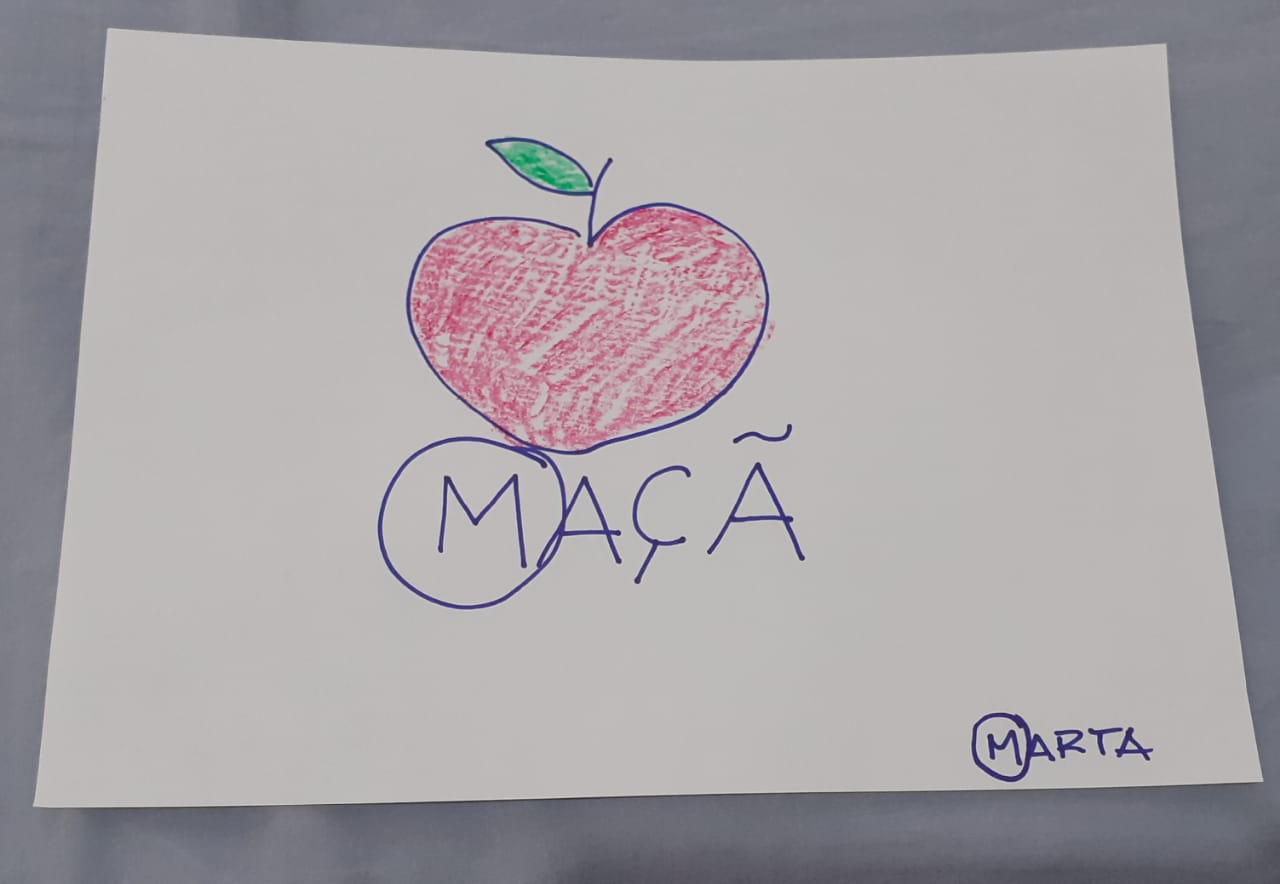 MAÇÃ
MARTA